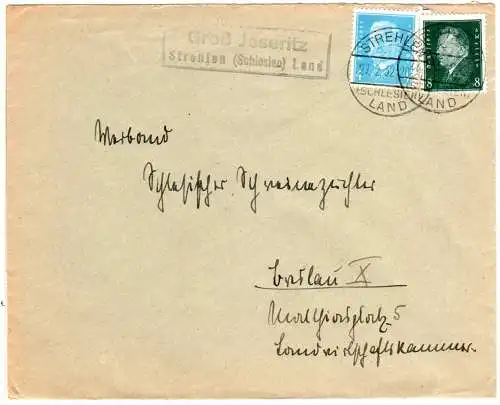 Groß Jeseritz
Strehlen (Schlesien) Land
STREHLEN
(SCHLESIEN)
LAND
LAND
8
Verband
Schlesischer Schweinezüchter
Breslau X
Matthiasplatz 5
Landwirtschaftskammer.